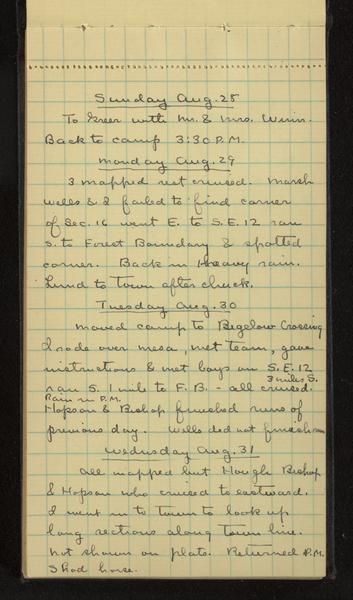 Sunday Aug. 28
To Greer with Mr. & Mrs. Winn.
Back to camp 3:30 P.M.
Monday Aug. 29
3 mapped rest cruised. Marsh
Wells & I failed to find corner
of Sec. 16 went E. to S.E. 12 ran
S. to Forest Boundary & spotted
corner. Back in heavy rain.
Lund to town after chuck.
Tuesday Aug. 30
Moved camp to Bigelow Crossing
I rode over mesa, met team, gave
instructions & met boys on S.E. 12
3 miles S.
ran S. 1 mile to F.B. - all cruised.
Rain in P.M.
Hopson & Bishop finished runs of
previous day. Wells did not finish run
Wednesday Aug. 31
All mapped but Hough Bishop
& Hopson who cruised to eastward.
I went in to town to look up
long sections along town line.
not shown on plats. Returned P.M.
Shod horse.